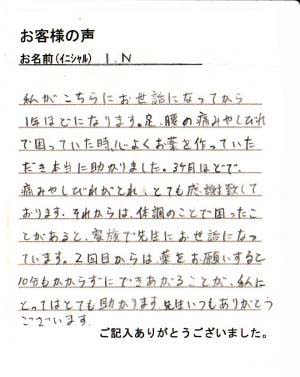 お客様の声
お名前(イニシャル) I.N
私がこちらにお世話になってから
1年ほどになります。足、腰の痛みやしびれ
で困っていた時、心よくお薬を作っていた
だき本当に助かりました。3ヶ月ほどで、
痛みやしびれがとれ、とても感謝致して
おります。それからは、体調のことで困ったこ
とがあると、家族で先生にお世話になっ
ています。2回目からは薬をお願いすると
10分もかからずにできあがることが、私に
とってはとても助かります 先生いつもありがとう
ございます.
ご記入ありがとうございました。